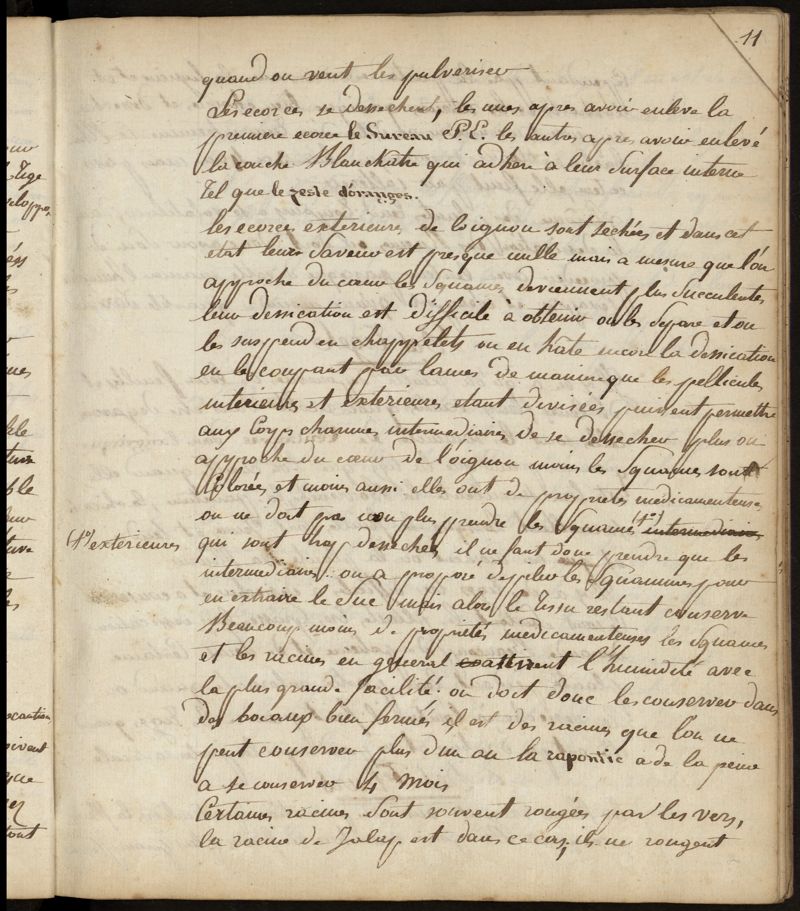 11
quand on veut les pulveriser
Les ecorces se dessechent, les unes apres avoir enleve la
premiere ecorce le Sureau P.E. les autres apres avoir enlevé
la couche Blanchatre qui adhere a leur surface interne
Tel que le zeste d'oranges.
les ecorces exterieures de l'oignon sont sechées et dans cet
etat leur saveur est presque nulle mais a mesure que l'on
approche du cœur les Squames deviennent plus succulentes
leur dessication est difficile à obtenir on les separe et on
les suspend en chappelets ou en hate encore la dessication
en le coupant par lames de maniere que les pellicules
interieures et exterieures etant divisées puissent permettre
aux Corps charnus intermediaires de se dessecher plus on
approche du cœur de l'oignon moins les Squames sont
Colorées et moins aussi elles ont de proprietés medicamenteuses
on ne doit pas non plus prendre les Squames (1°) intermediaires
(1°) exterieures
qui sont trop desseches il ne faut donc prendre que les
intermediaires. on a proposé de piler les Squammes pour
en extraire le Suc mais alors le Tissu restant conserve
Beaucoup moins de propriétés medicamenteuses les Squames
et les racines en general attirent l'humidité avec
la plus grande facilité. on doit donc les conserver dans
des bocaux bien fermés il est des racines que l'on ne
peut conserver plus d'un an la rapontic a de la peine
a se conserver 4 mois
Certaines racines sont souvent rongées par les vers,
la racine de Jalap est dans ce cas, ils ne rongent